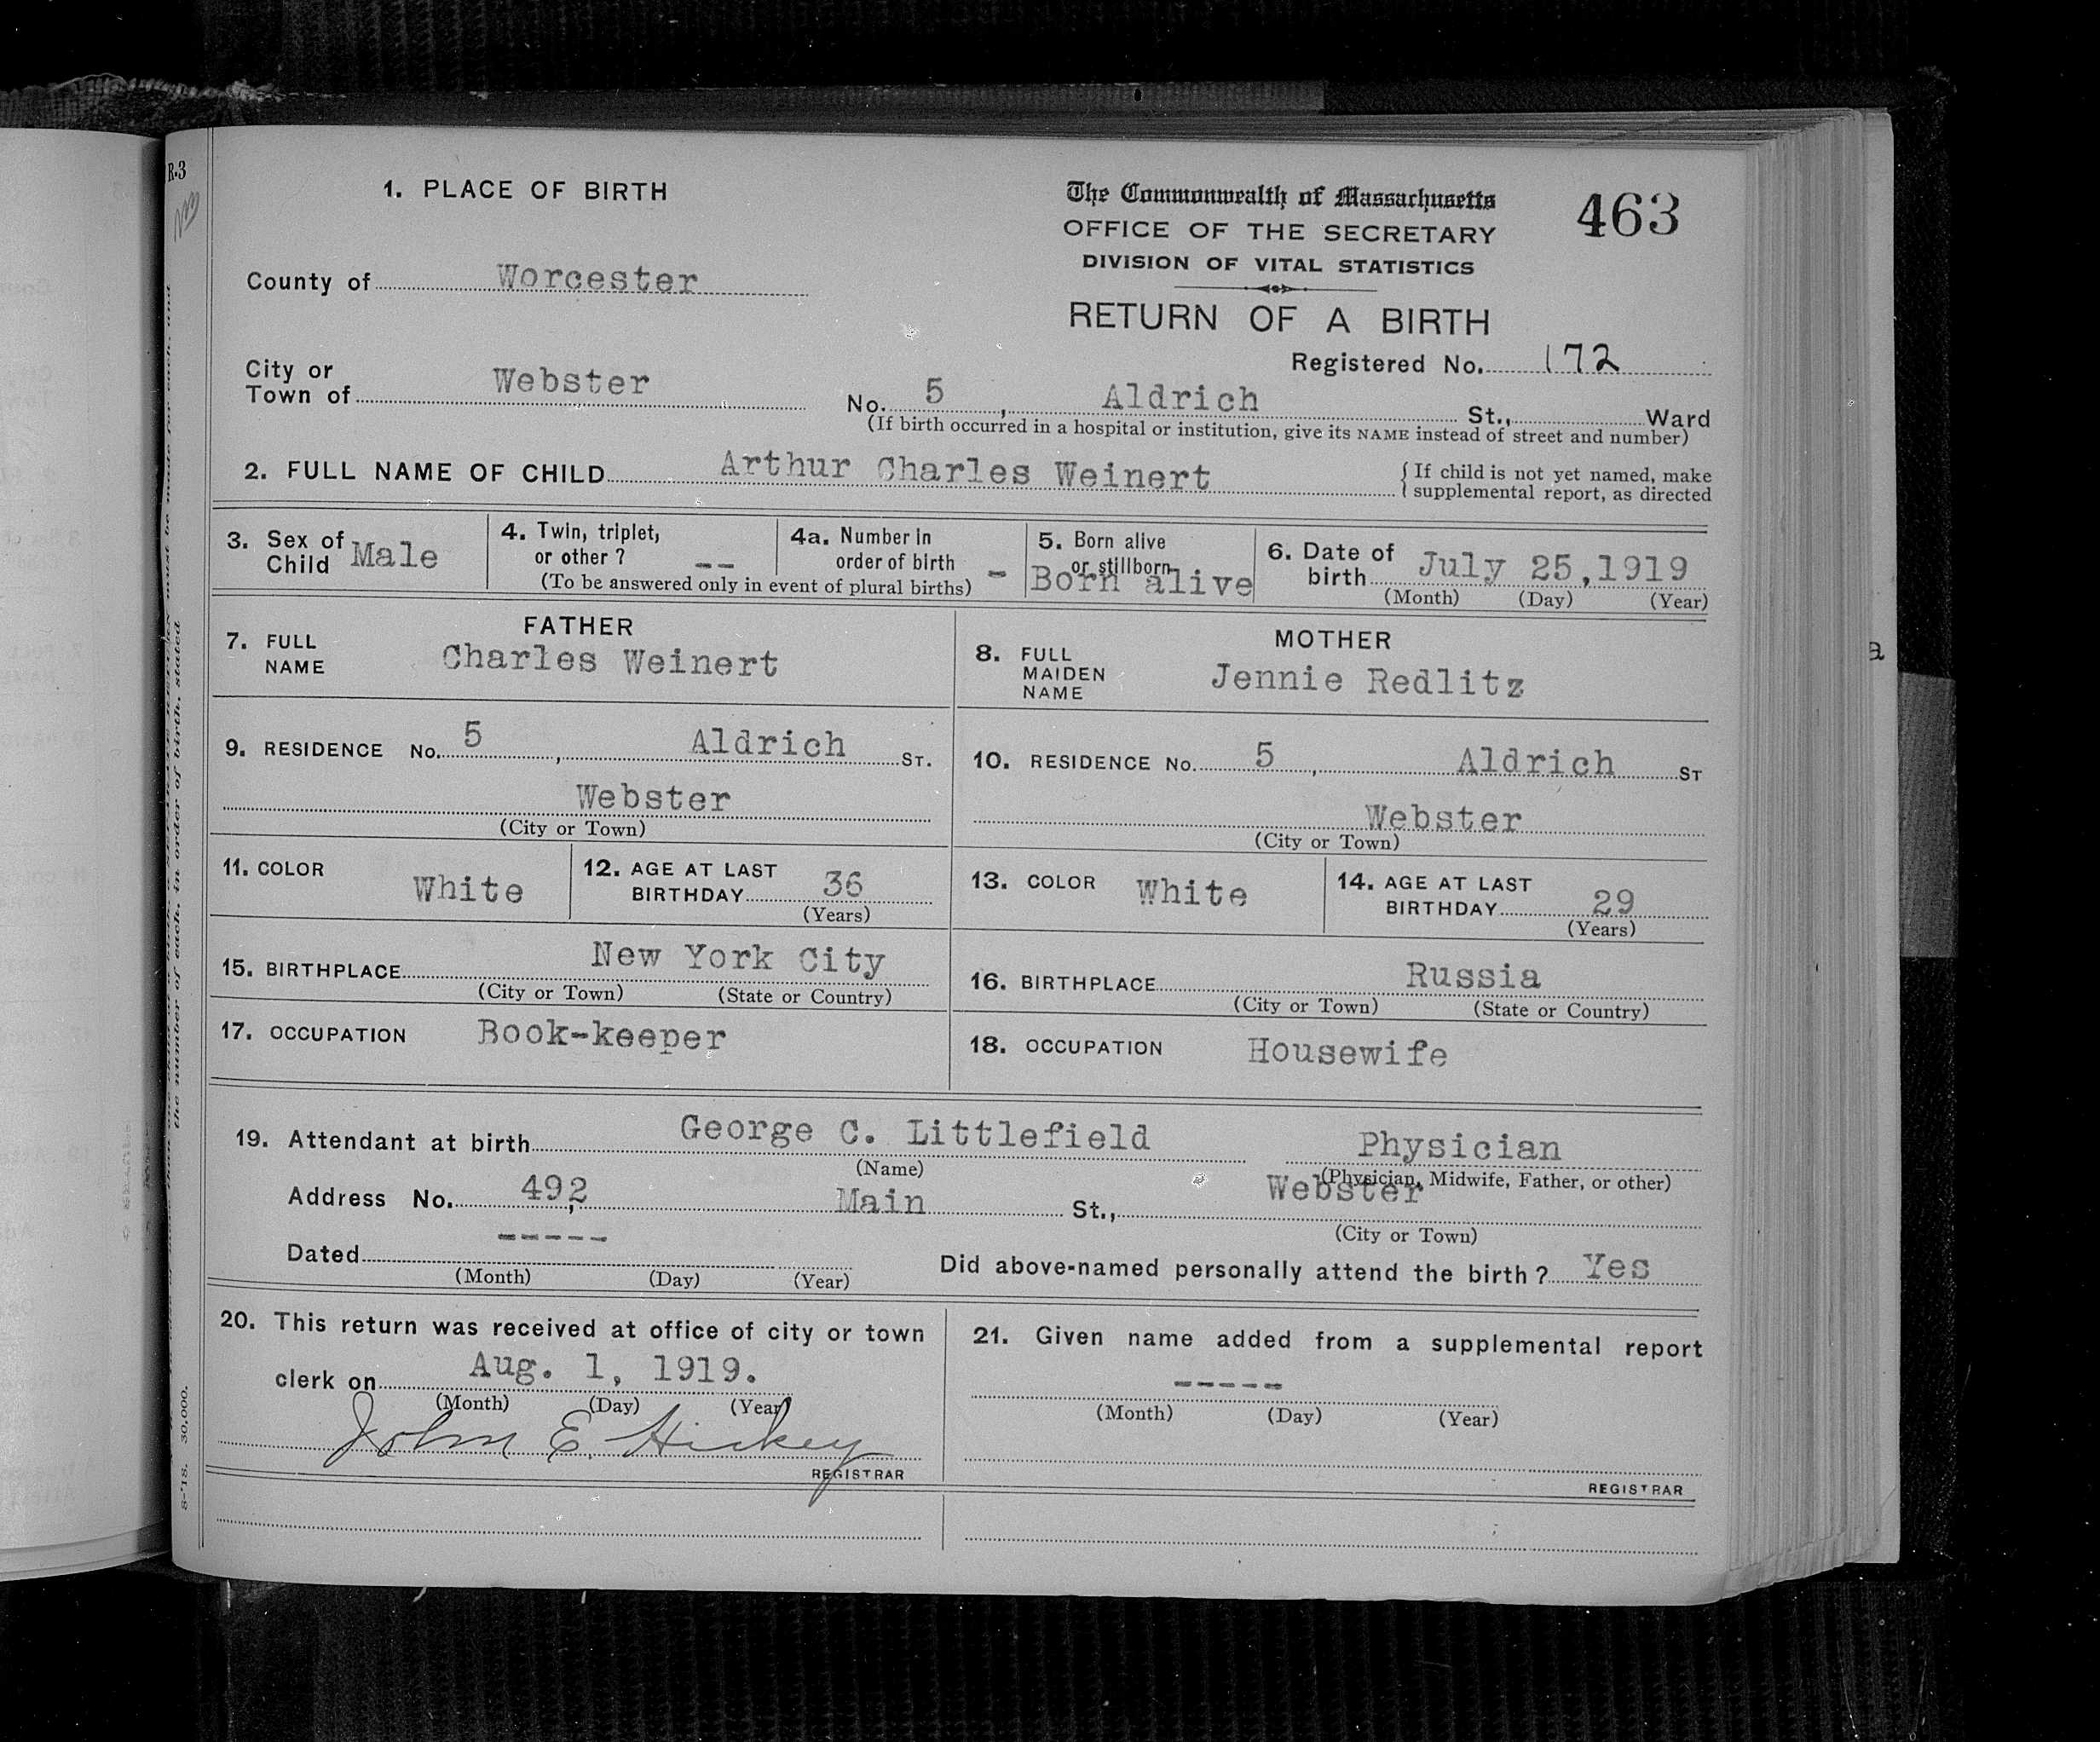 R-3
1. PLACE OF BIRTH
The Commonwealth of Massachusetts
463
OFFICE OF THE SECRETARY
DIVISION OF VITAL STATISTICS
County of Worcester
RETURN OF A BIRTH
Registered No. 172
City or
Town of Webster
No. 5, Aldrich St., Ward
(If birth occurred in a hospital or institution, give its NAME instead of street and number)
2. FULL NAME OF CHILD Arthur Charles Weinert
{ If child is not yet named, make
supplemental report, as directed
3. Sex of
Child Male
4. Twin, triplet,
or other ? --
4a. Number in
order of birth -
(To be answered only in event of plural births)
5. Born alive
or stillborn
Born alive
6. Date of
birth July 25,1919
(Month) (Day) (Year)
FATHER
7. FULL
NAME
Charles Weinert
MOTHER
8. FULL
MAIDEN
NAME
Jennie Redlitz
9. RESIDENCE No. 5, Aldrich ST.
Webster
(City or Town)
10. RESIDENCE No. 5, Aldrich ST
Webster
(City or Town)
11. COLOR White
12. AGE AT LAST
BIRTHDAY 36
(Years)
13. COLOR White
14. AGE AT LAST
BIRTHDAY 29
(Years)
15. BIRTHPLACE New York City
(City or Town) (State or Country)
16. BIRTHPLACE Russia
(City or Town) (State or Country)
17. OCCUPATION Book-keeper
18. OCCUPATION Housewife
19. Attendant at birth George C. Littlefield Physician
(Name) (Physician, Midwife, Father, or other)
Address No. 492, Main St., Webster
(City or Town)
Dated -----
(Month) (Day) (Year)
Did above-named personally attend the birth ? Yes
20. This return was received at office of city or town
clerk on Aug. 1, 1919.
(Month) (Day) (Year)
John E. Hickey
REGISTRAR
21. Given name added from a supplemental report
-----
(Month) (Day) (Year)
REGISTRAR
the number of each, in order of birth, stated
8-'18. 30,000.
a